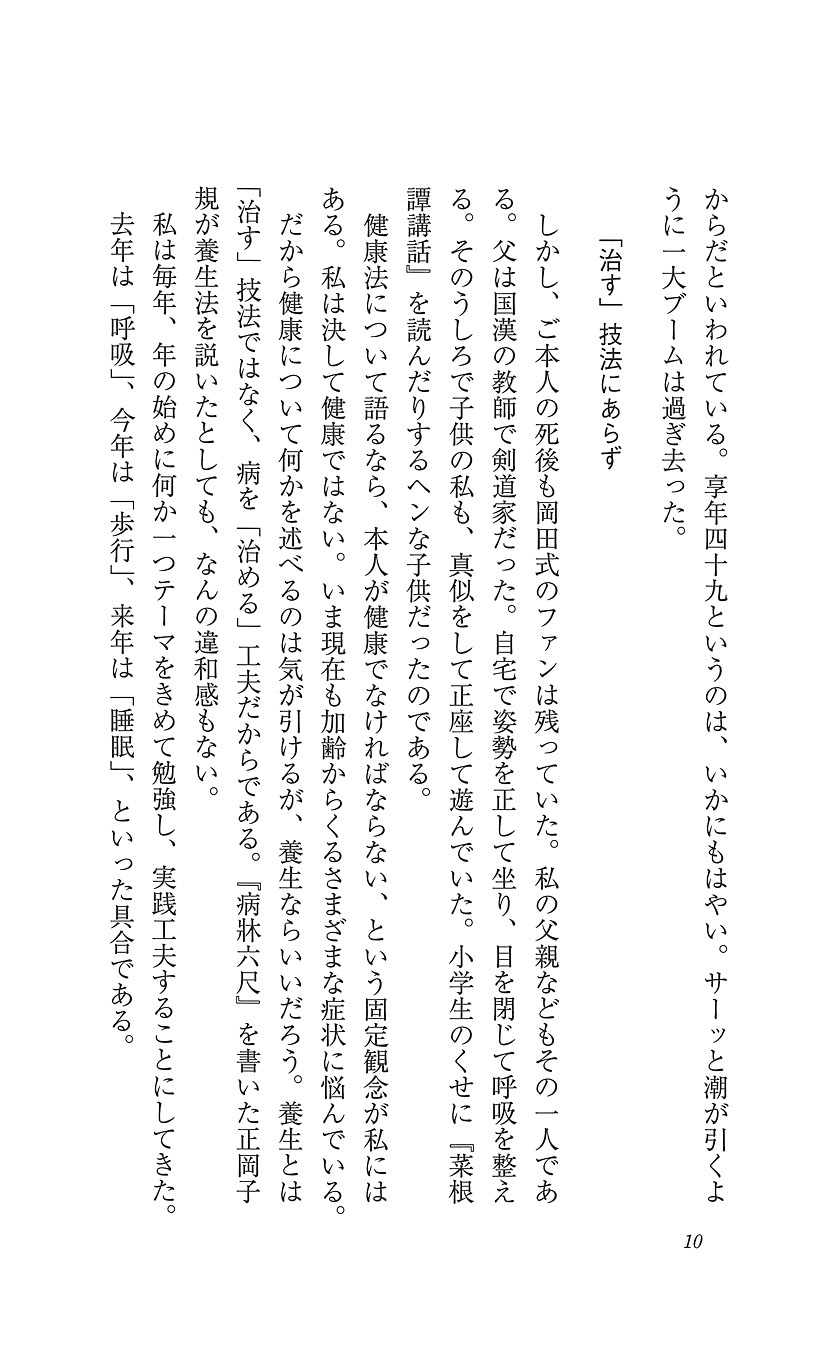 からだといわれている。享年四十九というのは、いかにもはやい。サーッと潮が引くよ
うに一大ブームは過ぎ去った。
「治す」技法にあらず
しかし、ご本人の死後も岡田式のファンは残っていた。私の父親などもその一人であ
る。父は国漢の教師で剣道家だった。自宅で姿勢を正して坐り、目を閉じて呼吸を整え
る。そのうしろで子供の私も、真似をして正座して遊んでいた。小学生のくせに『菜根
譚講話』を読んだりするヘンな子供だったのである。
健康法について語るなら、本人が健康でなければならない、という固定観念が私には
ある。私は決して健康ではない。いま現在も加齢からくるさまざまな症状に悩んでいる。
だから健康について何かを述べるのは気が引けるが、養生ならいいだろう。養生とは
「治す」技法ではなく、病を「治める」工夫だからである。『病牀六尺』を書いた正岡子
規が養生法を説いたとしても、なんの違和感もない。
私は毎年、年の始めに何か一つテーマをきめて勉強し、実践工夫することにしてきた。
去年は「呼吸」、今年は「歩行」、来年は「睡眠」、といった具合である。
10